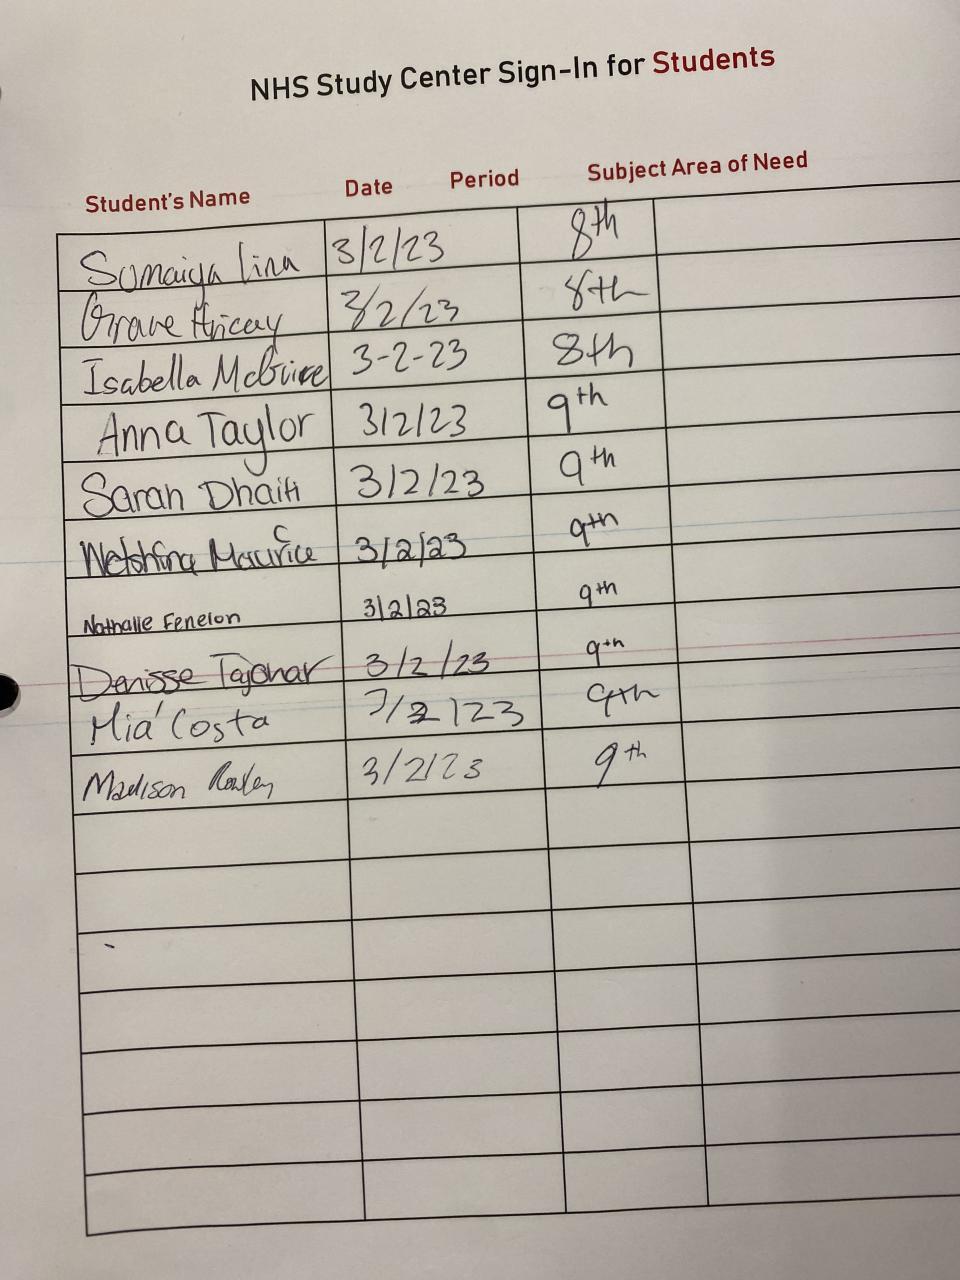 NHS Study Center Sign-In for Students
Student's Name Date Period Subject Area of Need
Sumaiya 3/2/23 8th
3/2/23 8th
Isabella McGuire 3-2-23 8th
Anna Taylor 3/2/23 9th
Sarah Dhaiti 3/2/23 9th
Maurice 3/2/23 9th
Nathalie Fenelon 3/2/23 9th
Denisse 3/2/23 9th
Mia Costa 3/2/23 9th
Madison 3/2/23 9th